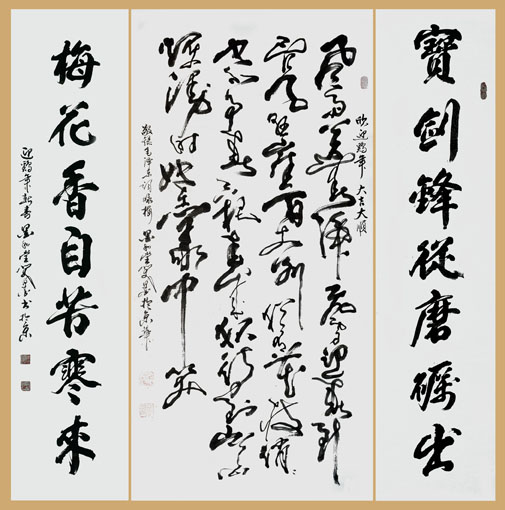 寶劍鋒從磨礪出
欣迎鷄年 大吉大順
風雨送春歸飛雪迎春到
已是懸崖百丈冰猶有花枝俏
也不爭春只把春來報待到山花
爛漫時她在叢中笑
敬錄毛澤東詞咏梅
梅花香自苦寒來
迎鷄年新春